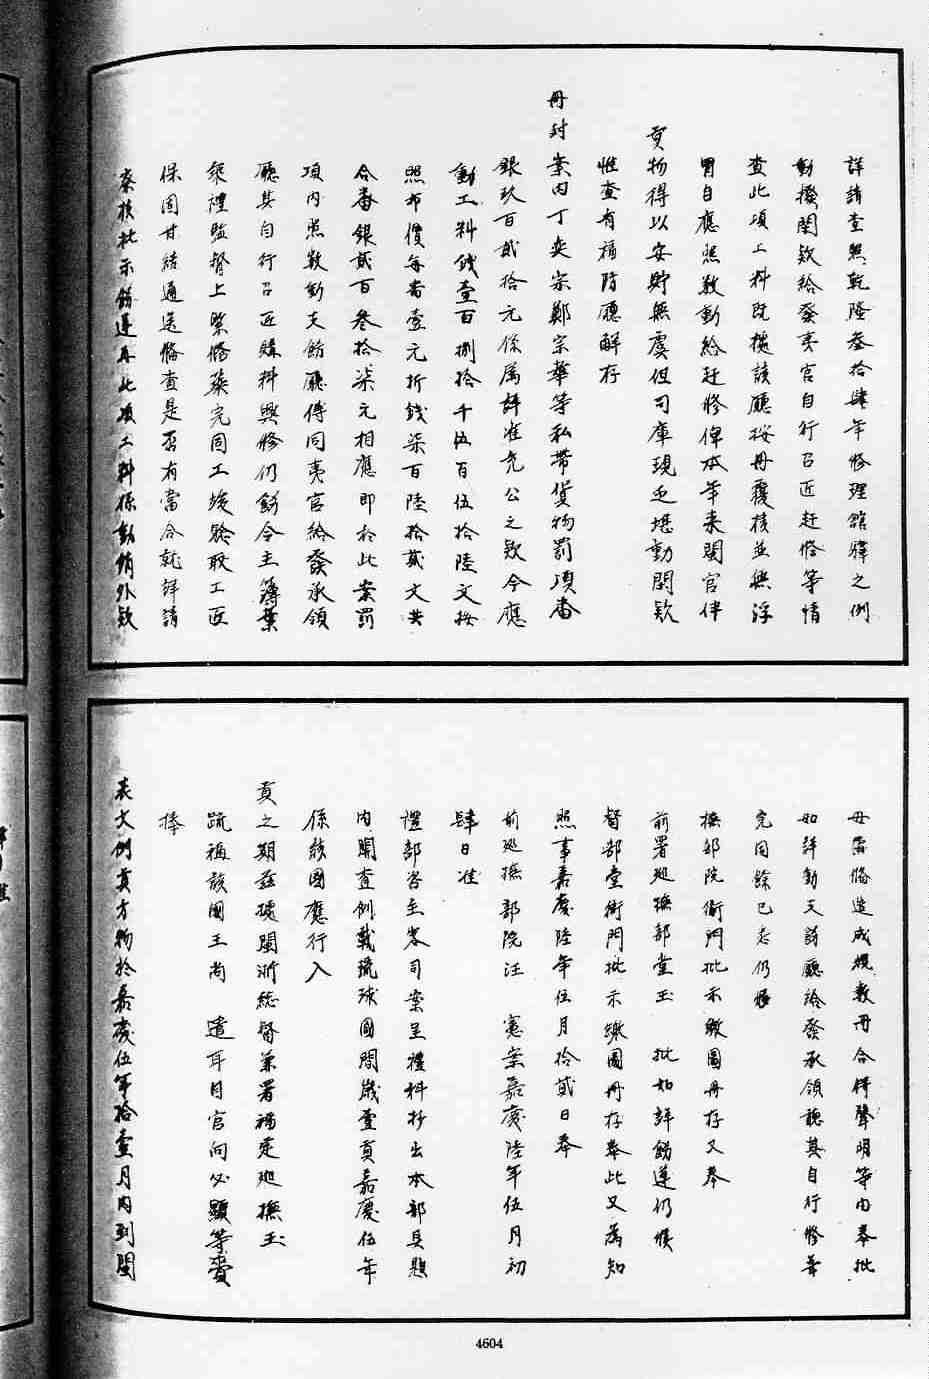 詳請查照乾隆叁拾肆年修理館驛之例
動撥閑款給發夷官自行召匠赶修等情
查此項工料既據該廳按冊覆核並無浮
冒自應照數動給赶修俾本年來閩官伴
貢物得以安貯無虞但司庫現乏堪動閑款
惟查有福防廳解存
冊封案內丁奕宗鄭宗華等私帶貨物罰項番
銀玖百貳拾元係屬詳准充公之款今應
動工料錢壹百捌拾千伍百伍拾陸文按
照市價每番壹元折錢柒百陸拾貳文共
合番銀貳百叁拾柒元相應即於此案罰
項內照數動支飭廳傳同夷官給發承領
廳其自行召匠購料興修仍飭令主簿葉
榮禮監督上緊脩葺完固工竣驗取工匠
保固甘結通送脩查是否有當合就詳請
察核批示飭遵再此項工料係動銷外款
毋庸脩造成規數冊合併聲明等由奉批
如詳動支該廳給發承領聽其自行修葺
完固餘已悉仍候
撫部院衙門批示繳圖冊存又奉
前署廵撫部堂玉 批如詳飭遵仍候
督部堂衙門批示繳圖冊存奉此又為知
照事嘉慶陸年伍月拾貳日奉
前廵撫部院汪 憲案嘉慶陸年伍月初
肆日准
禮部咨主客司案呈禮科抄出本部具題
內開查例載琉球國間歲壹貢嘉慶伍年
係該國應行入
貢之期茲據閩浙總督兼署福建廵撫玉
疏稱該國王尚 遣耳目官向必顯等賫
捧
表文例貢方物於嘉慶伍年拾壹月內到閩
4604